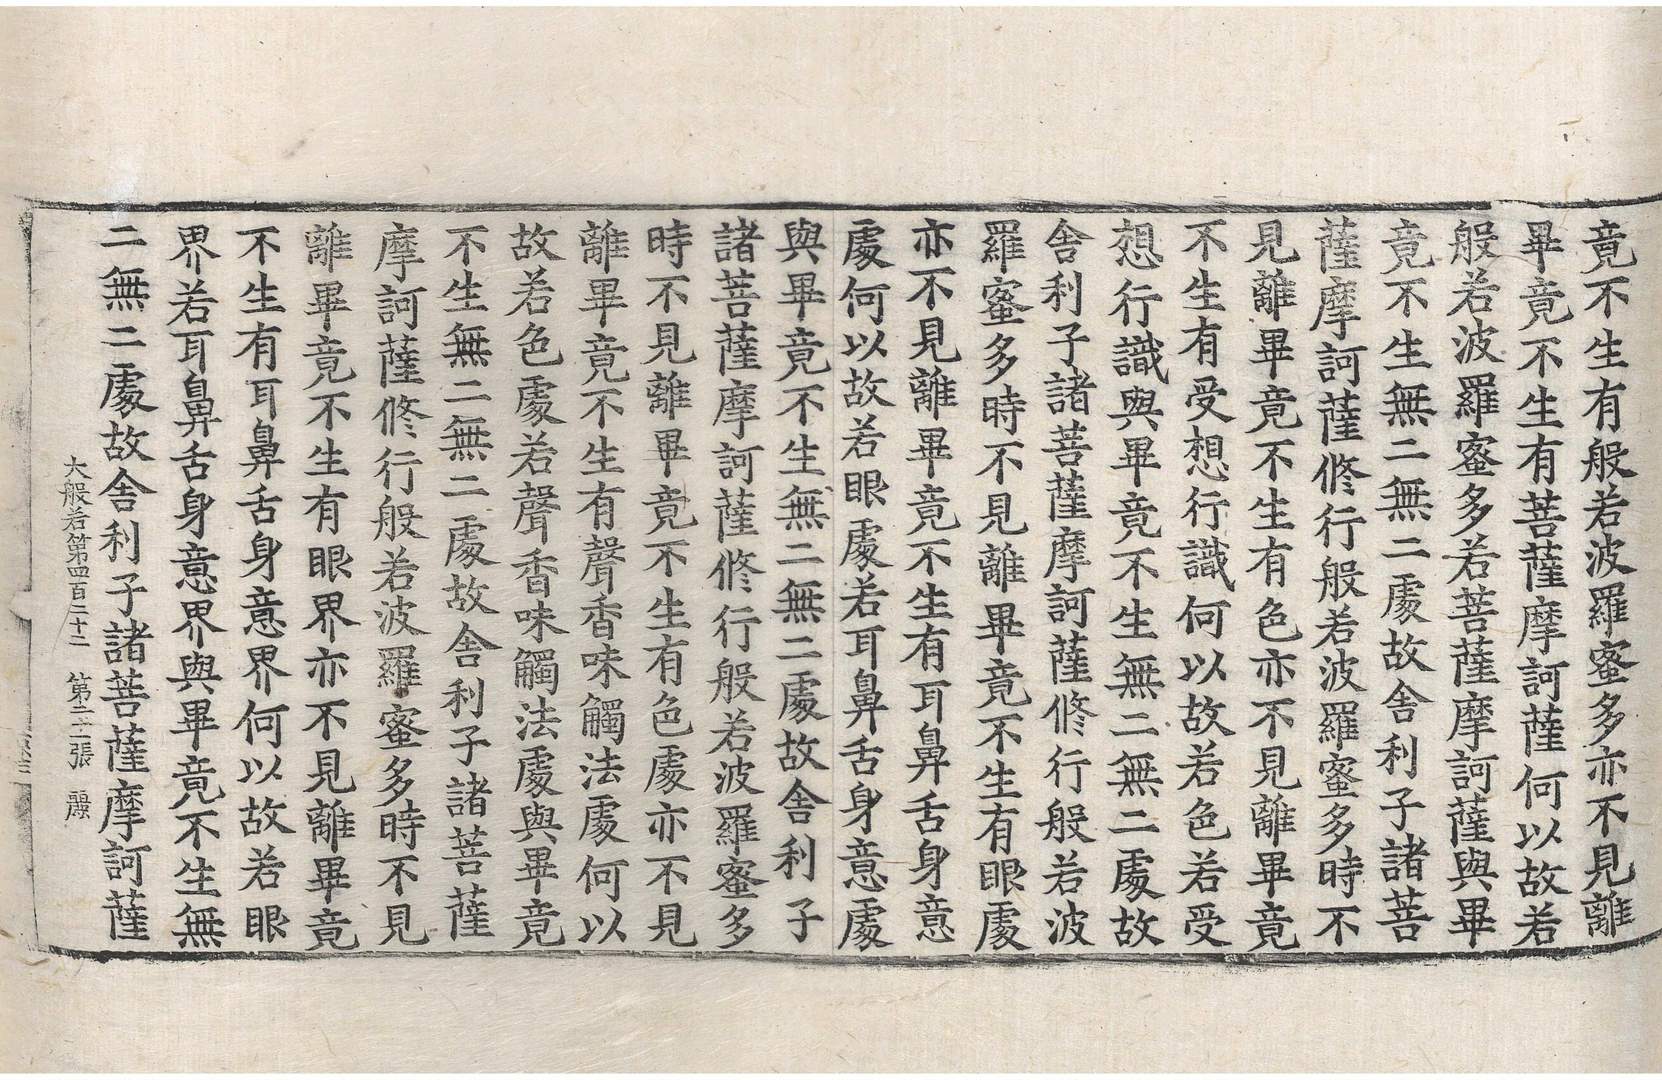 竟不生有般若波羅蜜多亦不見離
畢竟不生有菩薩摩訶薩何以故若
般若波羅蜜多若菩薩摩訶薩與畢
竟不生無二無二處故舍利子諸菩
薩摩訶薩修行般若波羅蜜多時不
見離畢竟不生有色亦不見離畢竟
不生有受想行識何以故若色若受
想行識與畢竟不生無二無二處故
舍利子諸菩薩摩訶薩修行般若波
羅蜜多時不見離畢竟不生有眼處
亦不見離畢竟不生有耳鼻舌身意
處何以故若眼處若耳鼻舌身意處
與畢竟不生無二無二處故舍利子
諸菩薩摩訶薩修行般若波羅蜜多
時不見離畢竟不生有色處亦不見
離畢竟不生有聲香味觸法處何以
故若色處若聲香味觸法處與畢竟
不生無二無二處故舍利子諸菩薩
摩訶薩修行般若波羅蜜多時不見
離畢竟不生有眼界亦不見離畢竟
不生有耳鼻舌身意界何以故若眼
界若耳鼻舌身意界與畢竟不生無
二無二處故舍利子諸菩薩摩訶薩
大般若第四百二十二